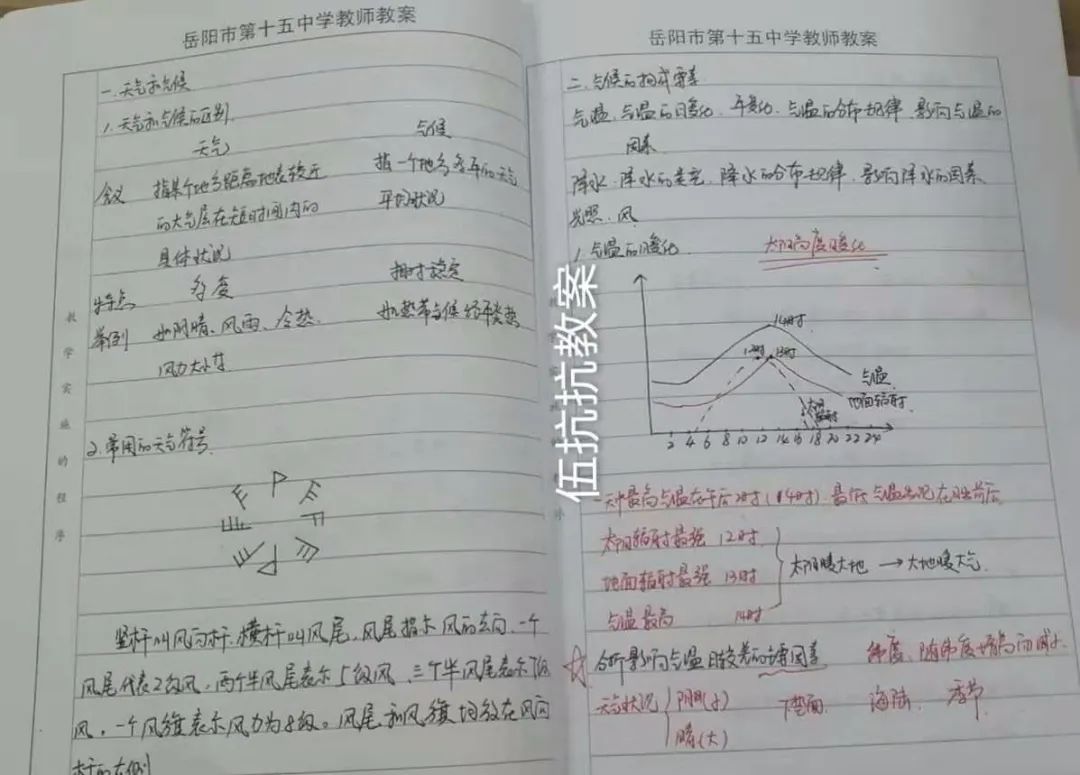 岳阳市第十五中学教师教案
一.天气和气候
1.天气和气候的区别.
天气 气候
含义 指某个地方距离地表较近 指一个地方多年的天气
的大气层在短时间内的 平均状况
具体状况
特点 多变 相对稳定
举例 如阴晴、风雨、冷热. 如热带气候终年炎热
风力大小等
2.常用的天气符号.
竖杆叫风向杆.横杆叫风尾.风尾指示风的去向.一个
风尾代表2级风,两个半风尾表示5级风.三个半风尾表示7级
风,一个风旗表示风力为8级。风尾和风旗均放在风向
杆的左侧
教学实施的程序
岳阳市第十五中学教师教案
二.气候的构成要素
气温.气温的日变化、年变化.气温的分布规律.影响气温的
因素
降水.降水的类型.降水的分布规律.影响降水的因素
光照.风
1.气温的日变化 太阳高度变化
14时.
12时 13时
气温
地面辐射.
太阳辐射.
2 4 6 8 10 12 14 16 18 20 22 24
一天中最高气温在午后2时(14时).最低气温出现在日出前后
太阳辐射最强 12时
地面辐射最强 13时
气温最高 14时
太阳暖大地 → 大地暖大气.
☆分析影响气温日较差的主要因素 纬度、随纬度增高而减小
天气状况 阴(小) 下垫面 海陆. 季节.
晴(大)
伍抗抗教案